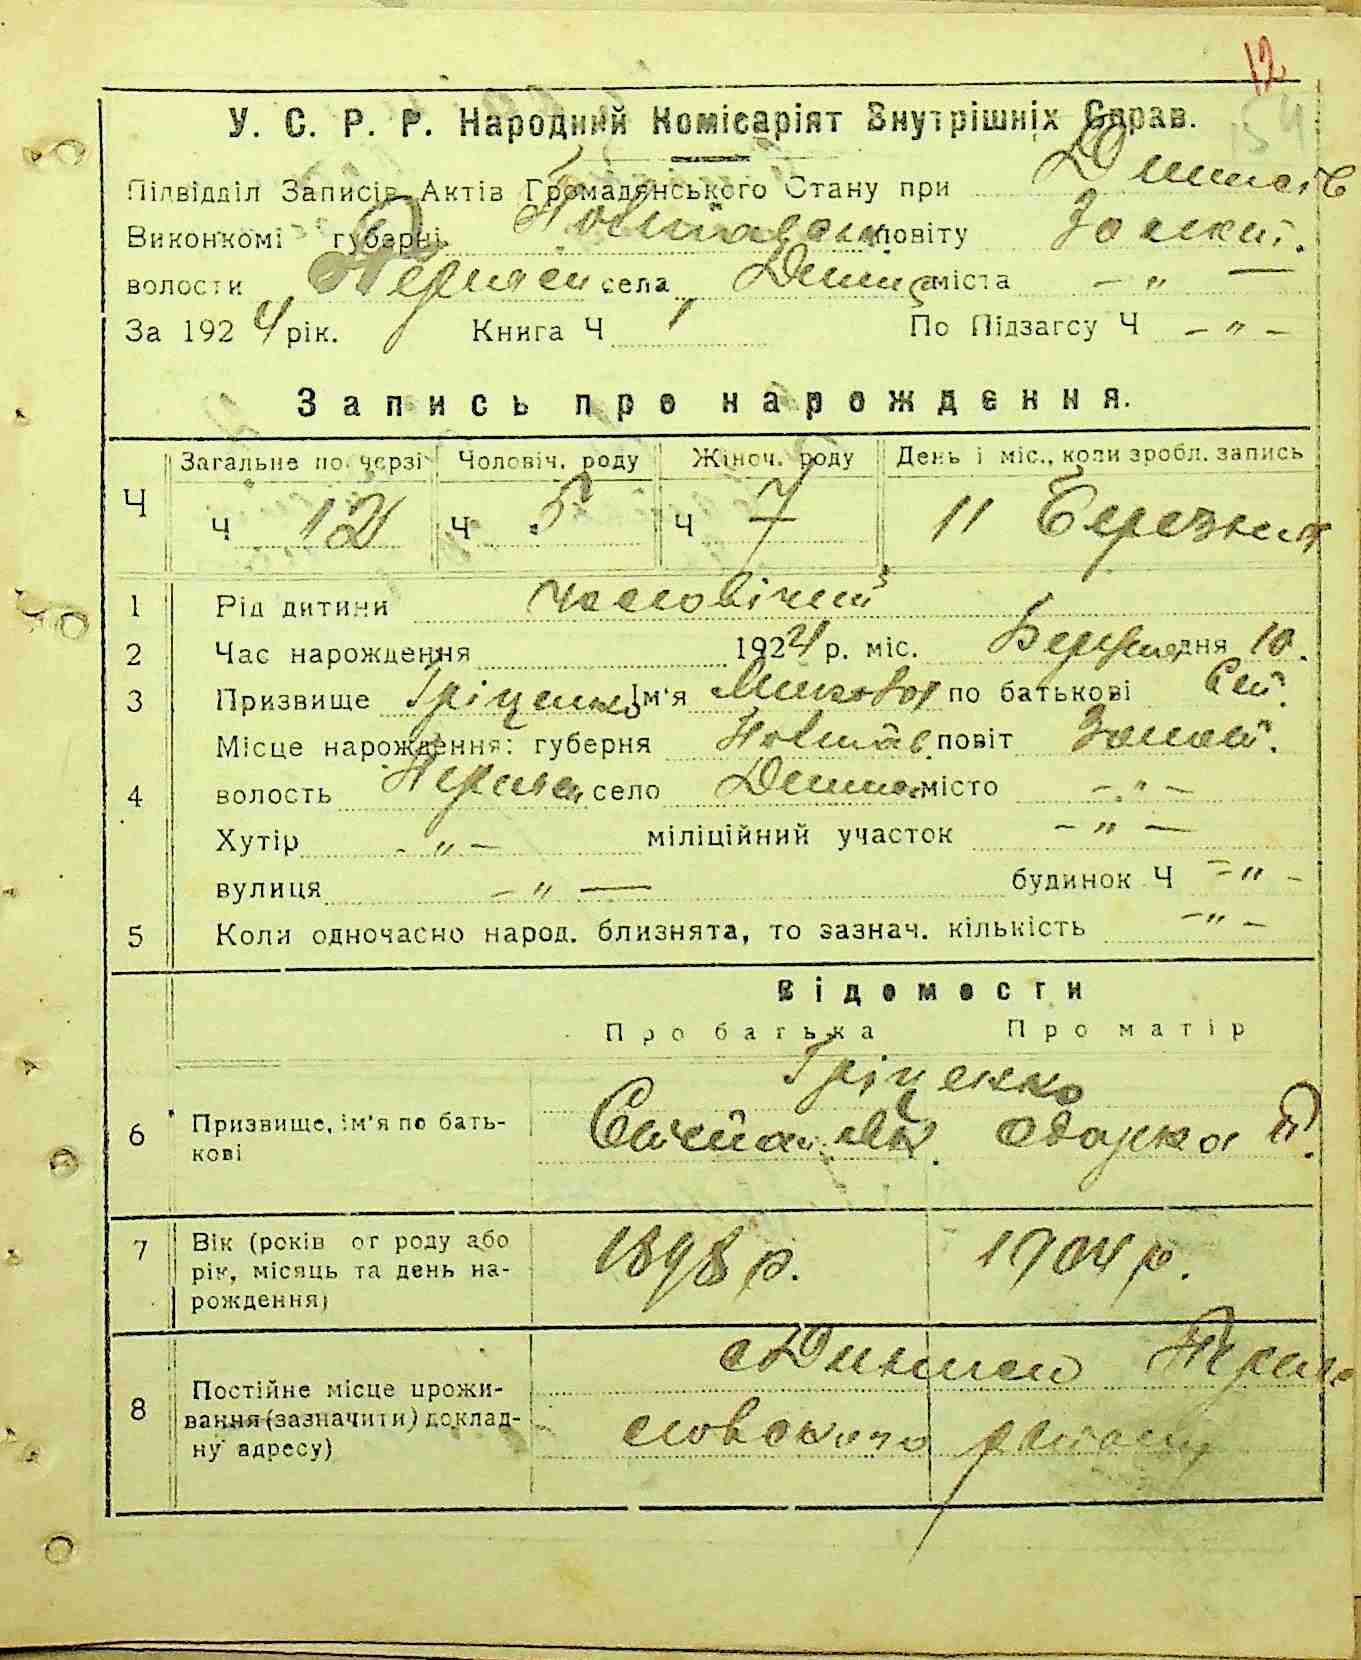 12
У. С. Р. Р. Народний Комісаріят Внутрішніх Справ.
Підвідділ Записів Актів Громадянського Стану при
Виконкомі губерні Полтавськ повіту Золкит.
волости села міста — " —
За 1924 рік. Книга Ч 1 По Підзагсу Ч — " —
Запись про нарождення.
Загальне по черзі Чоловіч. роду Жіноч. роду День і міс., коли зробл. запись
Ч Ч 12 Ч 5 Ч 7 11 Березня
1 Рід дитини чоловічий
2 Час нарождення 1924 р. міс. Березня дня 10.
3 Призвище Гріценко Ім'я по батькові
Місце нарождення: губерня Полтав. повіт
4 волость село місто — " —
Хутір — " — міліційний участок — " —
вулиця — " — будинок Ч — " —
5 Коли одночасно народ. близнята, то зазнач. кількість — " —
Відомости
Про батька Про матір
Гріценко
6 Призвище, ім'я по бать- Одарка П.
кові
7 Вік (років от роду або 1898 р. 1904 р.
рік, місяць та день на-
рождення)
8 Постійне місце прожи-
вання (зазначити) доклад- словського району
ну адресу)